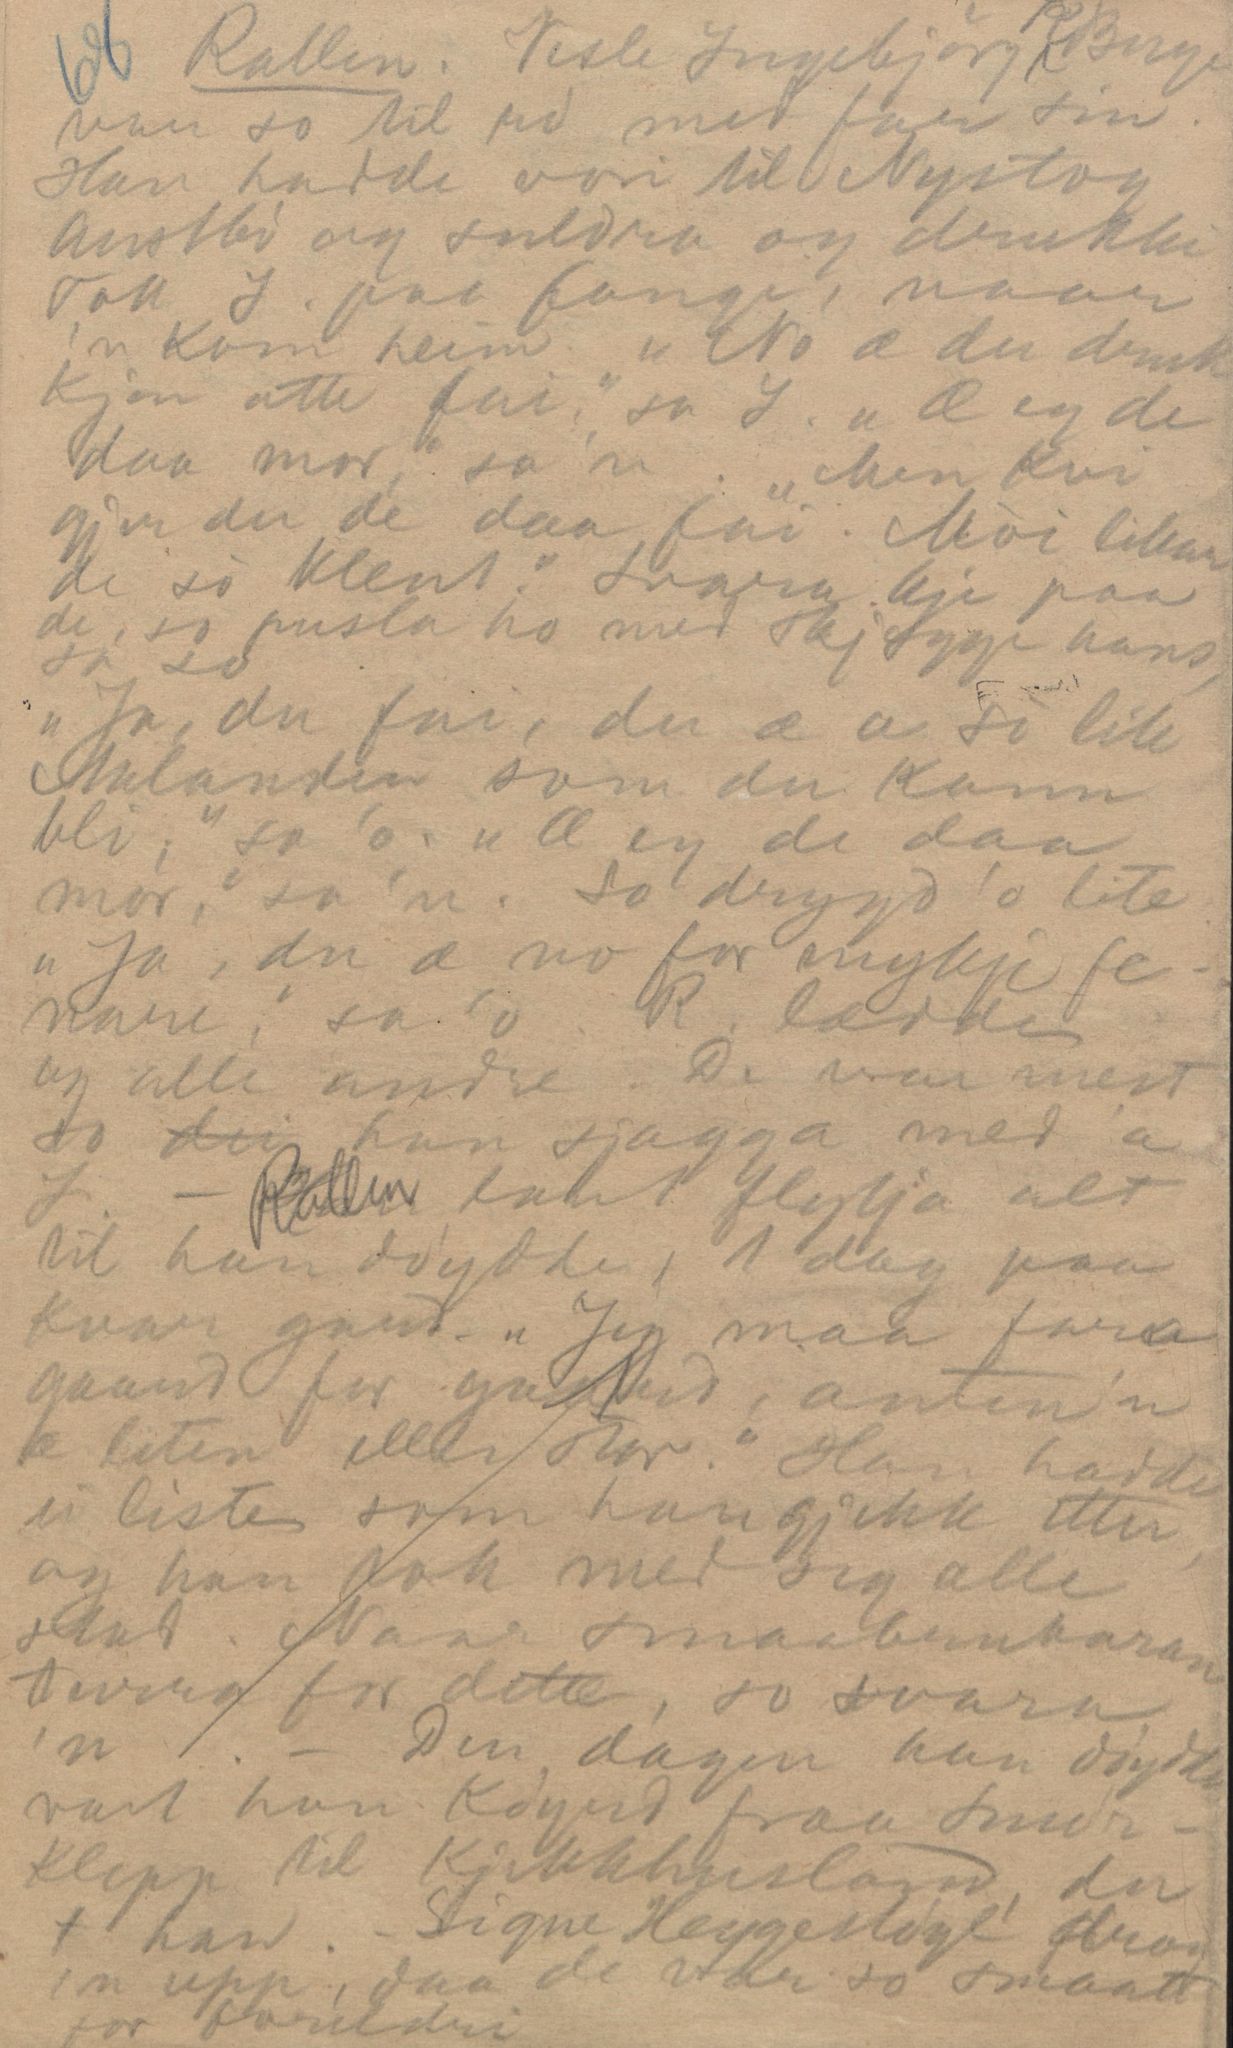 66 Rallen. Vesle Ingebjörg R Berge
var so til rd med far sin.
Han hadde vori til Nystog
Austbö og suldra og drukki
Tok I. paa fange, naar
'n kom heim. "No æ du druk
kjen atte fai," sa I. "Æ eg de
daa mor," sa 'n. "Men kvi
gjer du de daa fai". Möi likar
de so klent." Svara kje paa
de, so pusla ho med skjegge hans,
sa so
"Ja, du fai, du æ a so lik
Mulanden som du kann
bli," sa 'o. "Æ eg de daa
mor," sa 'n. So drygd 'o lite
"Ja, du æ no for mykje fe-
nare," sa 'o. R. lædde
og alle andre. De var mest
so dei han sjagga med 'a
I. — Rallen laut flytja alt
til han döydde, 1 dag paa
kvar gard. "Jeg maa fara
gaard for gaard, anten 'n
æ liten eller stor." Han hadde
ei liste som han gjekk etter,
og han tok med seg alle
stad. Naar smaabrukaran
for dette, so svara
'n. — Den dagen han döydde
vart han köyrd fraa Smör-
klepp til Kjekkhusland, der
† han. - Signe Heggestöyl drog
'n upp, daa de var so smaatt
for foreldri